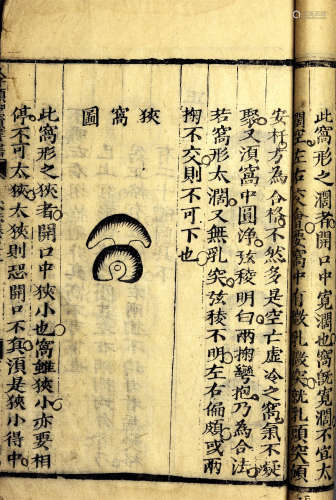 此窩形之濶者開口中寬濶也窩旣寬濶不宜太
濶空左右交會要窩中有微乳微突就乳頭突傾
安杆方為合格不然多是空亡虛冷之窩氣不凝
聚又湏窩中圓淨弦稜明白兩掬彎抱乃為合法
若窩形太濶又無乳突弦稜不明左右偏頗或兩
掬不交則不可下也
狹窩圖
此窩形之狹者開口中狹小也窩雖狹小亦要相
停不可太狹太狹則恐開口不真湏是狹小得中